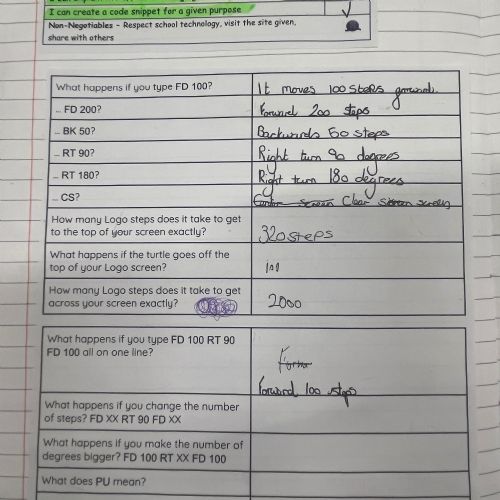 I can create a code snippet for a given purpose
Non-Negotiables - Respect school technology, visit the site given,
share with others
What happens if you type FD 100? It moves 100 steps forward.
... FD 200? Forward 200 steps
... BK 50? Backwards 50 steps
... RT 90? Right turn 90 degrees
... RT 180? Right turn 180 degrees
... CS? Clear screen
How many Logo steps does it take to get
to the top of your screen exactly? 320 steps
What happens if the turtle goes off the
top of your Logo screen?
How many Logo steps does it take to get
across your screen exactly? 2000
What happens if you type FD 100 RT 90
FD 100 all on one line?
Forward 100 steps
What happens if you change the number
of steps? FD XX RT 90 FD XX
What happens if you make the number of
degrees bigger? FD 100 RT XX FD 100
What does PU mean?